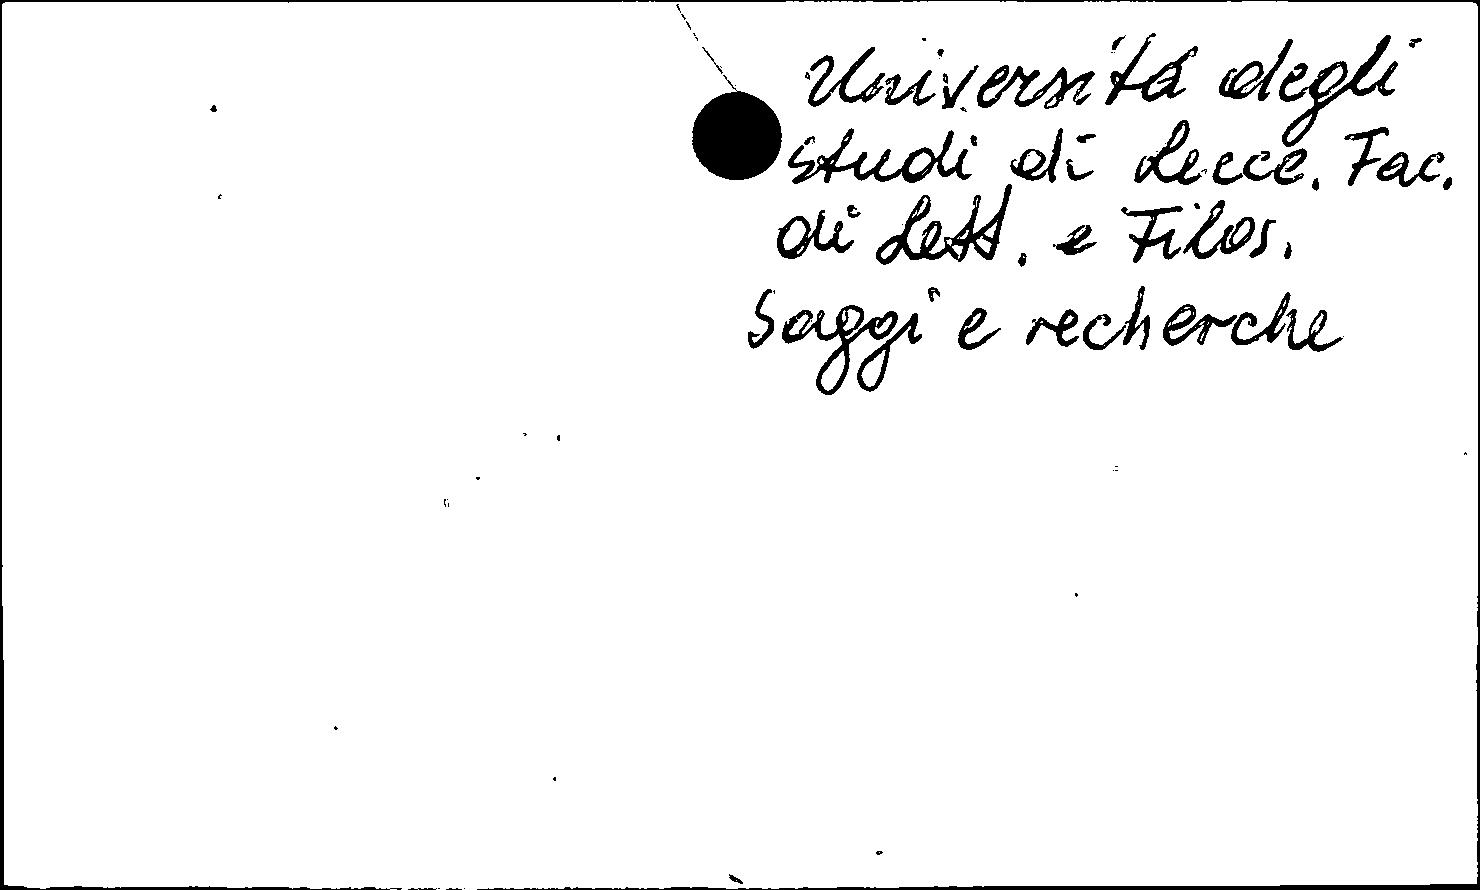 Università degli
studi di Lecce. Fac.
di Lett. e Filos.
Saggi e recherche